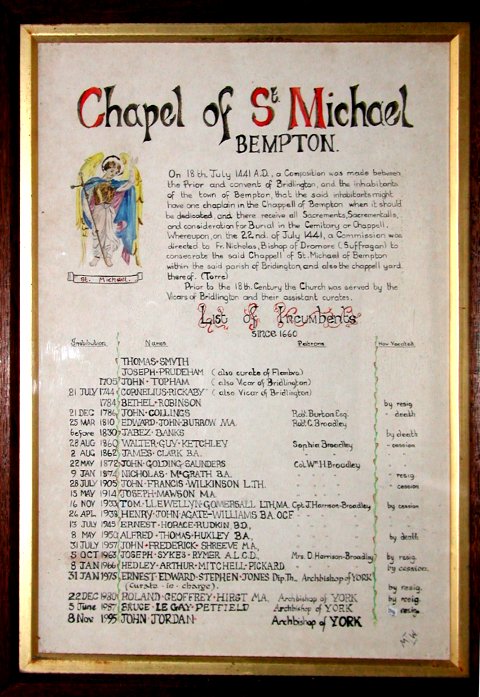 Chapel of St. Michael
BEMPTON.
On 18th. July 1441 A.D., a Composition was made between
the Prior and convent of Bridlington, and the inhabitants
of the town of Bempton, that the said inhabitants might
have one chaplain in the Chappell of Bempton when it should
be dedicated, and there receive all Sacraments, Sacramentalia,
and consideration for Burial in the Cemitory or Chappell.
Whereupon, on the 22.nd of July 1441, a Commission was
directed to Fr. Nicholas, Bishop of Dromore (Suffragan) to
consecrate the said Chappell of St. Michael of Bempton
within the said parish of Bridlington, and also the chappell yard
thereof. (Torre)
Prior to the 18th. Century the Church was served by the
Vicars of Bridlington and their assistant curates.
St. Michael.
List of Incumbents
SINCE 1660
Institution Names Patrons How Vacated
THOMAS·SMYTH
JOSEPH·PRUDEHAM (also curate of Flambro)
1705 JOHN·TOPHAM (also Vicar of Bridlington)
21 JULY 1744 CORNELIUS·RICKABY (also Vicar of Bridlington)
1784 BETHEL·ROBINSON by resig
21 DEC 1786 JOHN·COLLINGS Robt. Burton Esq. - death
23 MAR 1810 EDWARD·JOHN·BURROW M.A. Robt. C. Broadley
before 1830 JABEZ·BANKS by death
28 AUG 1860 WALTER·GUY·KETCHLEY Sophia Broadley - cession
2 AUG 1862 JAMES·CLARK B.A.
22 MAY 1872 JOHN·GOLDING·SAUNDERS Col. Wm. H. Broadley
9 JAN 1874 NICHOLAS·McGRATH B.A. - resig.
28 JULY 1905 JOHN·FRANCIS·WILKINSON L.TH. - cession
15 MAY 1914 JOSEPH·MAWSON M.A.
16 NOV 1933 TOM·LLEWELLYN·GOMERSALL L.TH, M.A. Cpt. J. Harrison-Broadley by cession
26 APL 1938 HENRY·JOHN·AGATE·WILLIAMS B.A. OCF
13 JULY 1945 ERNEST·HORACE·RUDKIN B.D.
8 MAY 1950 ALFRED·THOMAS·HUXLEY B.A. by death
31 JULY 1957 JOHN·FREDERICK·SHREEVE M.A.
5 OCT 1963 JOSEPH·SYKES·RYMER A.L.C.D. Mrs. D. Harrison-Broadley by resig.
8 JAN 1966 HEDLEY·ARTHUR·MITCHELL·PICKARD by cession.
31 JAN 1975 ERNEST·EDWARD·STEPHEN·JONES Dip. Th. Archbishop of YORK
(Curate-in-charge). by resig.
22 DEC 1980 ROLAND·GEOFFREY·HIRST M.A. Archbishop of YORK by resig
5 June 1987 BRUCE·LE GAY·PETFIELD Archbishop of YORK by resig
8 Nov 1995 JOHN JORDAN Archbishop of YORK